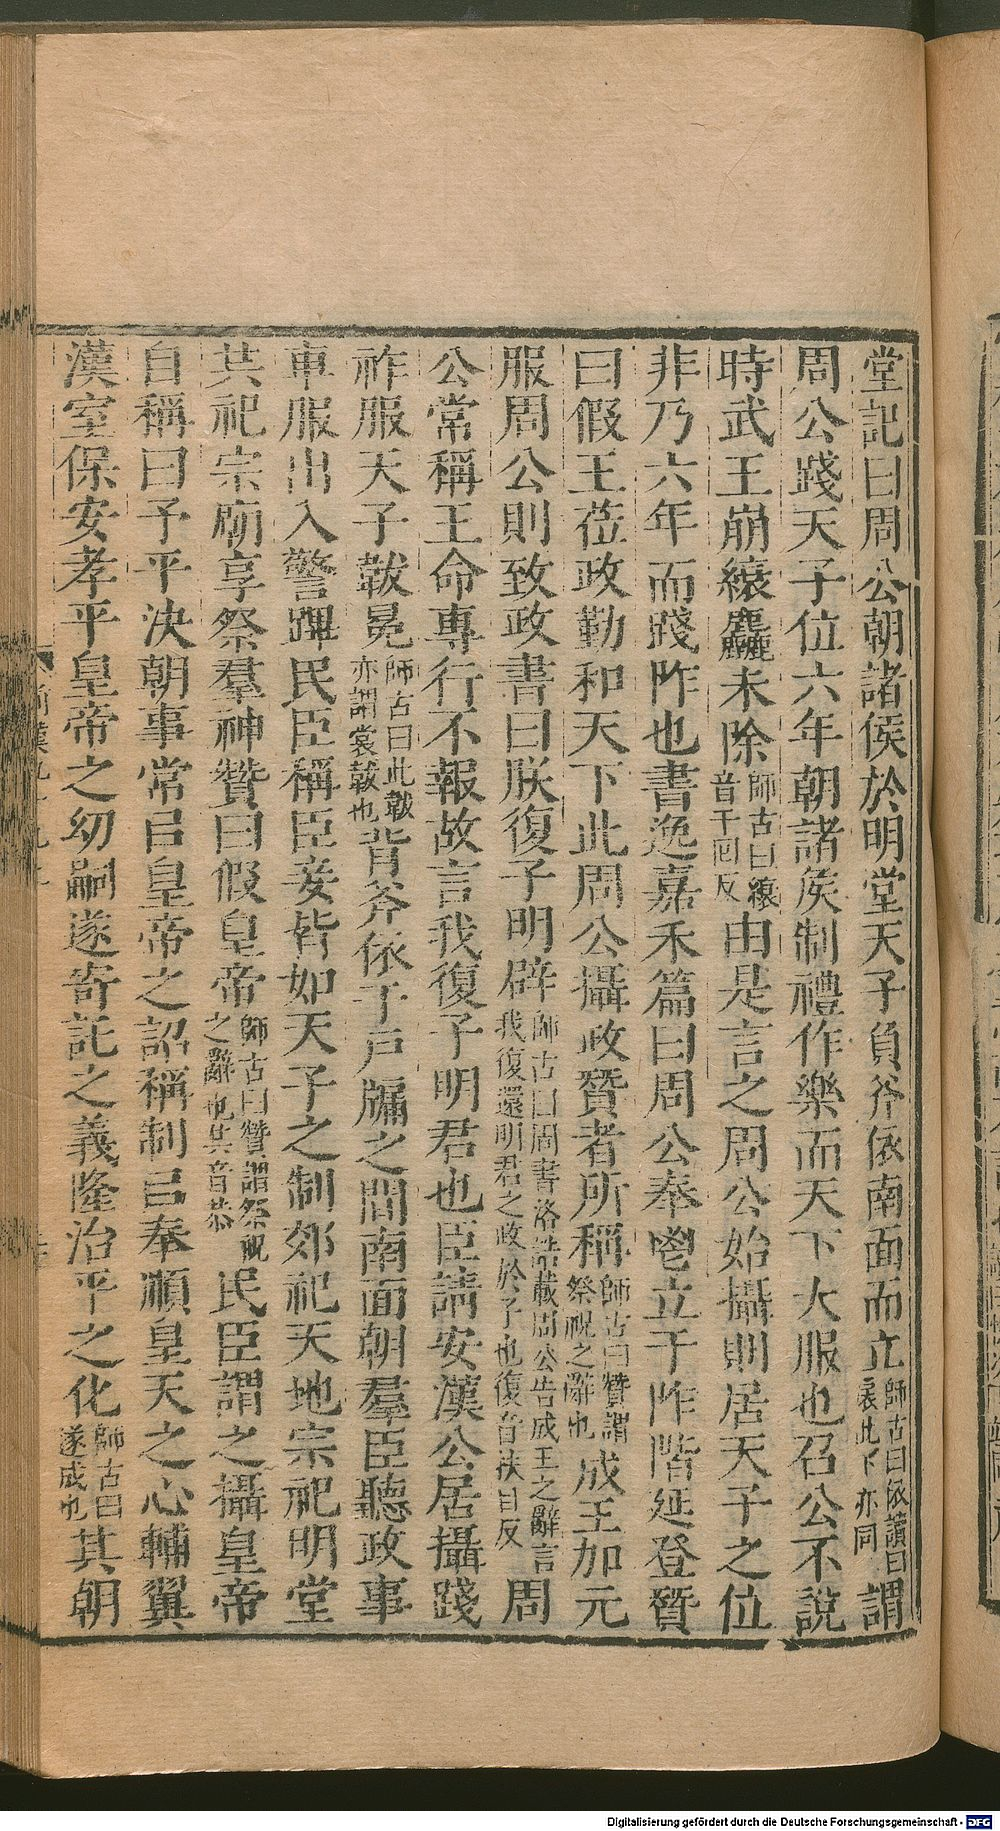 堂記曰周公朝諸侯於明堂天子負斧依南面而立師古曰依讀曰扆此下亦同謂
周公踐天子位六年朝諸侯制禮作樂而天下大服也召公不說
時武王崩縗麤未除師古曰縗音千回反由是言之周公始攝則居天子之位
非乃六年而踐阼也書逸嘉禾篇曰周公奉鬯立于阼階延登贊
曰假王莅政勤和天下此周公攝政贊者所稱師古曰贊謂祭祝之辭也成王加元
服周公則致政書曰朕復子明辟師古曰周書洛誥載周公告成王之辭言我復還明君之政於子也復音扶目反周
公常稱王命專行不報故言我復子明君也臣請安漢公居攝踐
祚服天子韍冕師古曰此韍亦謂裳韍也背斧依于戶牖之間南面朝羣臣聽政事
車服出入警蹕民臣稱臣妾皆如天子之制郊祀天地宗祀明堂
共祀宗廟享祭羣神贊曰假皇帝師古曰贊謂祭祝之辭也共音恭民臣謂之攝皇帝
自稱曰予平決朝事常㠯皇帝之詔稱制㠯奉順皇天之心輔翼
漢室保安孝平皇帝之幼嗣遂寄託之義隆治平之化師古曰遂成也其朝
Digitalisierung gefördert durch die Deutsche Forschungsgemeinschaft - DFG